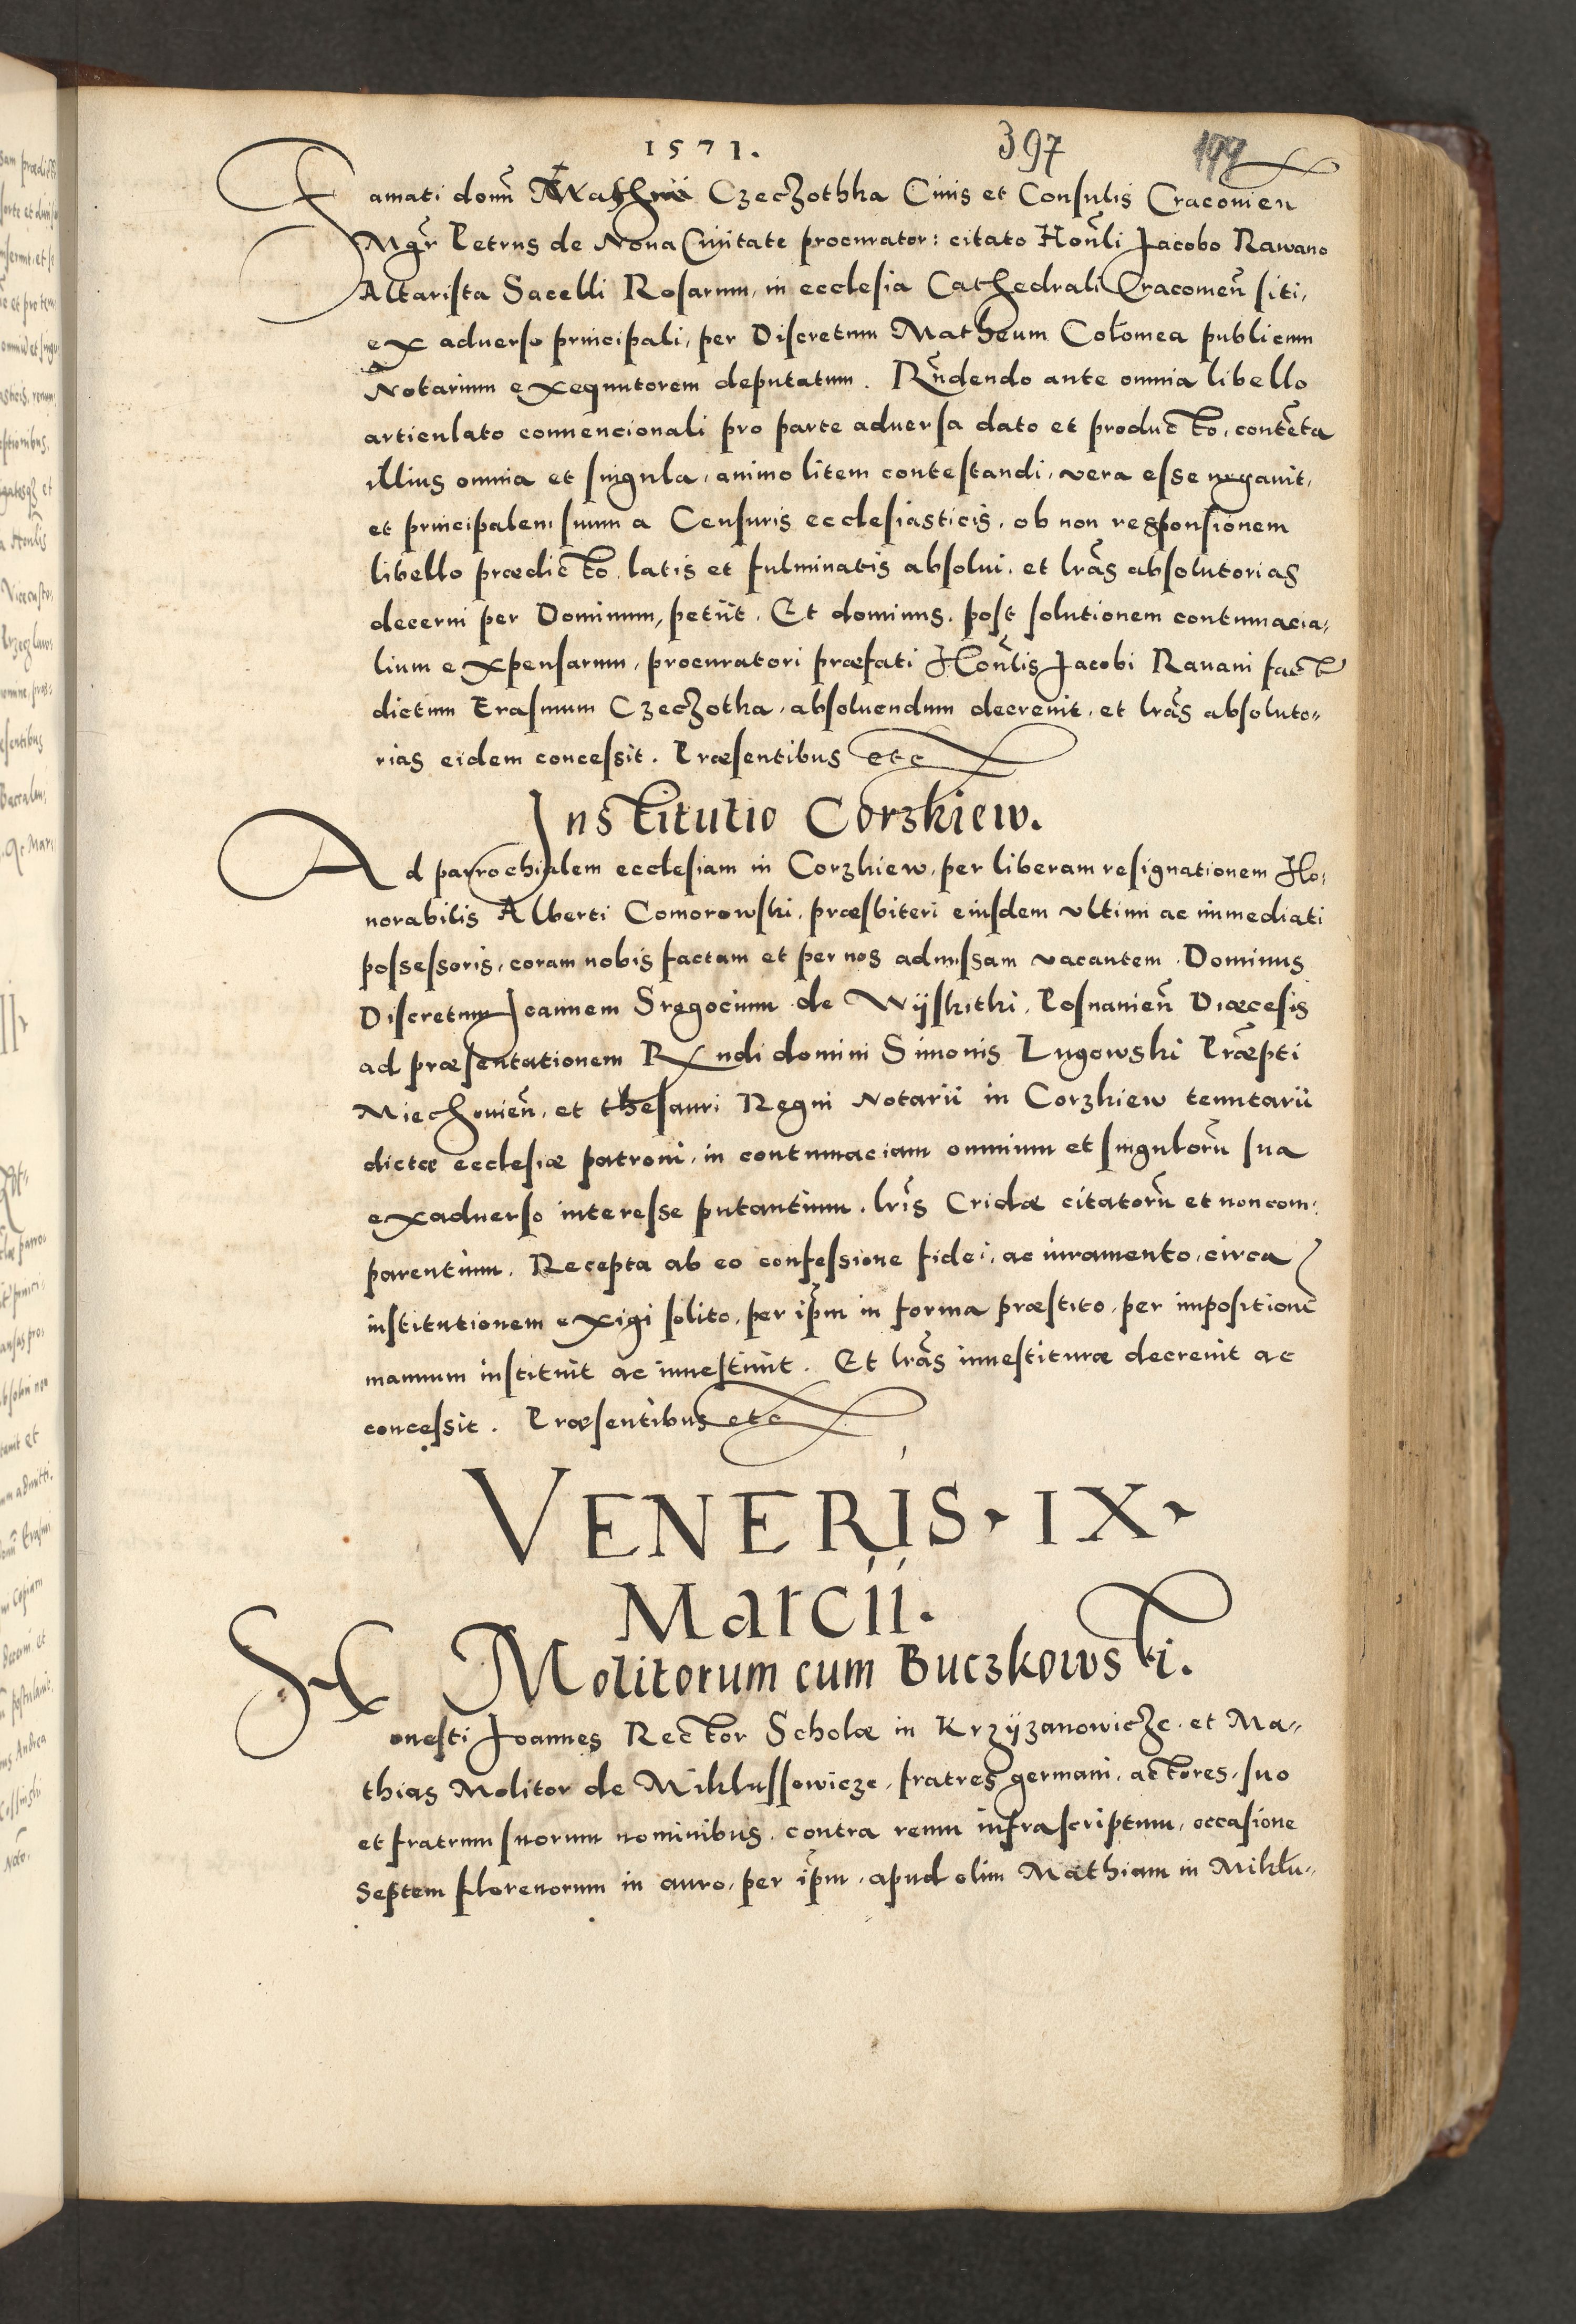 1571. 397 199
Famati domĩ Czeczothka Ciuis et Consulis Cracouien
Mgr̃ Petrus de Noua Ciuitate procurator: citato Honl̃i Jacobo Rawano
Altarista Sacelli Rosarum, in ecclesia Cathedrali Cracouien̄ siti,
ex aduerso principali, per Discretum Matheum Colomea publicum
Notarium exequutorem deputatum. Rñdendo ante omnia libello
articulato conuencionali pro parte aduersa dato et producto, contẽta
illius omnia et singula, animo litem contestandi, vera esse negauit,
et principalem suum a Censuris ecclesiasticis, ob non responsionem
libello prædicto, latis et fulminatis absolui, et lrãs absolutorias
decerni per Dominum, petiit. Et dominus, post solutionem contumacia,
lium expensarum, procuratori præfati Honl̃is Jacobi Rauani fact
dictum Erasmum Czeczotka, absoluendum decreuit, et lrãs absoluto,,
rias eidem concessit. Præsentibus etc
Institutio Corzkiew.
Ad parrochialem ecclesiam in Corzkiew, per liberam resignationem Ho,
norabilis Alberti Comorowski, præsbiteri eiusdem vltimi ac immediati
possessoris, coram nobis factam et per nos admissam vacantem. Dominus
Discretum Joannem Sręgocium de Wÿskithki, Posnanien̄ Diæcesis
ad præsentationem Rndi domini Simonis Lugowski Præpti
Miechouien̄, et thesauri Regni Notarii in Corzkiew tenutarii
dictæ ecclesiæ patroni, in contumaciam omnium et singulorũ sua
exaduerso interesse putantium, lrĩs Cridæ citatorũ et non com,
parentium, Recepta ab eo confessione fidei, ac iuramento, circa
institutionem exigi solito, per ip̃m in forma præstito, per impositionẽ
manuum instituit ac inuestiuit. Et lrãs inuestituræ decreuit ac
concessit. Præsentibus etc
VENERIS · IX ·
Marcii.
Molitorum cum Buczkowski.
Honesti Joannes Rector Scholæ in Krzÿzanowicze, et Ma,,
thias Molitor de Miklussowicze, fratres germani, actores, suo
et fratrum suorum nominibus, contra reum infrascriptum, occasione
Septem florenorum in auro, per ip̃m, apud olim Mathiam in Miklu,,